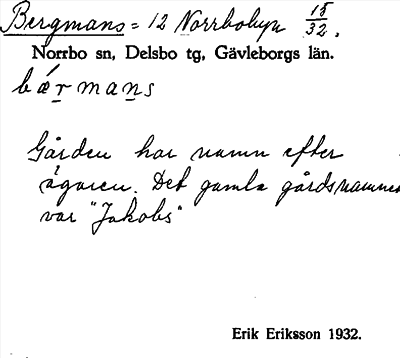 Bergmans = 12 Norrbobyn 15/32.
Norrbo sn, Delsbo tg, Gävleborgs län.
bǽrmans
Gården har namn efter
ägaren. Det gamla gårdsnamnet
var "Jakobs"
Erik Eriksson 1932.